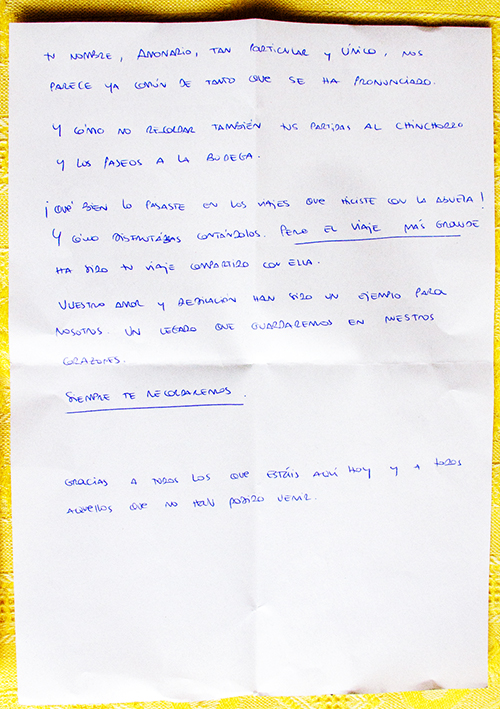 TU NOMBRE, AMONARIO, TAN PARTICULAR Y ÚNICO, NOS
PARECE YA COMÚN DE TANTO QUE SE HA PRONUNCIADO.
Y CÓMO NO RECORDAR TAMBIÉN TUS PARTIDAS AL CHINCHORRO
Y LOS PASEOS A LA BODEGA.
¡QUÉ BIEN LO PASASTE EN LOS VIAJES QUE HICISTE CON LA ABUELA!
Y CÓMO DISFRUTABAS CONTÁNDOLOS. PERO EL VIAJE MÁS GRANDE
HA SIDO TU VIAJE COMPARTIDO CON ELLA.
VUESTRO AMOR Y DEDICACIÓN HAN SIDO UN EJEMPLO PARA
NOSOTROS. UN LEGADO QUE GUARDAREMOS EN NUESTROS
CORAZONES.
SIEMPRE TE RECORDAREMOS.
GRACIAS A TODOS LOS QUE ESTÁIS AQUÍ HOY Y A TODOS
AQUELLOS QUE NO HAN PODIDO VENIR.